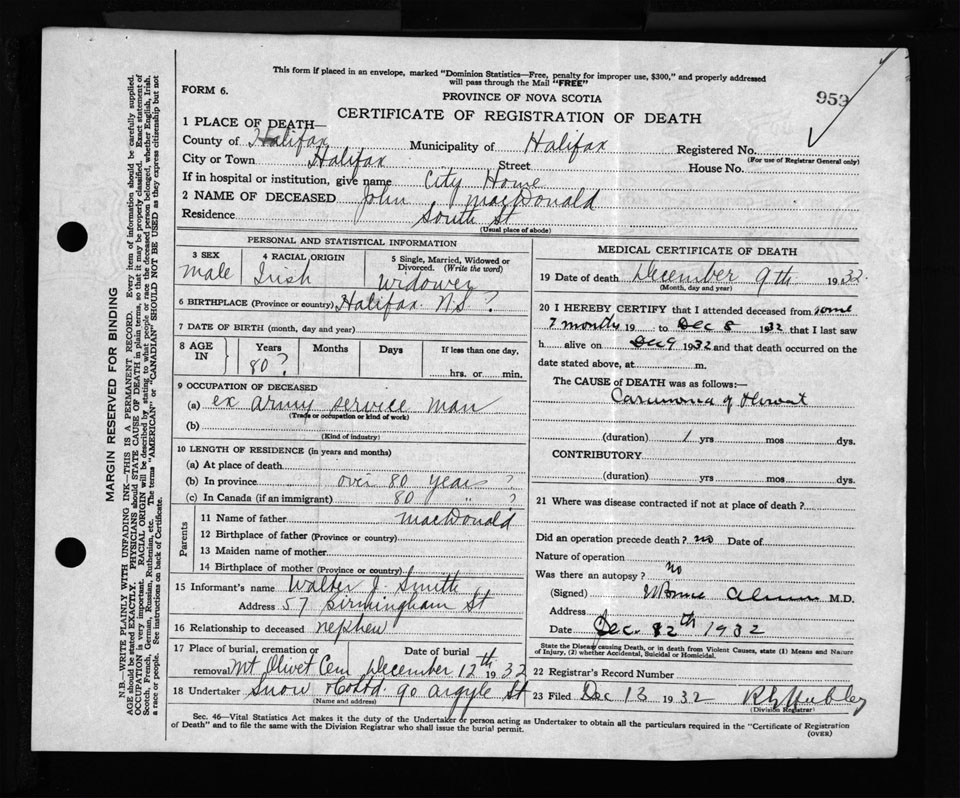 This form if placed in an envelope, marked "Dominion Statistics—Free, penalty for improper use, $300," and properly addressed
will pass through the Mail "FREE"
FORM 6.
PROVINCE OF NOVA SCOTIA
959
CERTIFICATE OF REGISTRATION OF DEATH
1 PLACE OF DEATH—
County of Halifax Municipality of Halifax Registered No.
(For use of Registrar General only)
City or Town Halifax Street House No.
If in hospital or institution, give name City Home
2 NAME OF DECEASED John MacDonald
Residence South St
(Usual place of abode)
PERSONAL AND STATISTICAL INFORMATION
3 SEX 4 RACIAL ORIGIN 5 Single, Married, Widowed or
Divorced. (Write the word)
male Irish Widower
6 BIRTHPLACE (Province or country) Halifax N.S ?
7 DATE OF BIRTH (month, day and year)
8 AGE IN Years Months Days If less than one day,
80 ? hrs. or min.
9 OCCUPATION OF DECEASED
(a) ex army service man
(Trade or occupation or kind of work)
(b)
(Kind of industry)
10 LENGTH OF RESIDENCE (in years and months)
(a) At place of death
(b) In province over 80 years ?
(c) In Canada (if an immigrant) 80 " ?
Parents
11 Name of father MacDonald
12 Birthplace of father (Province or country)
13 Maiden name of mother
14 Birthplace of mother (Province or country)
15 Informant's name Walter J. Smith
Address 57 Birmingham St
16 Relationship to deceased nephew
17 Place of burial, cremation or removal Date of burial
Mt Olivet Cem December 12th 1932
18 Undertaker Snow & Co Ltd. 90 Argyle St
(Name and address)
MEDICAL CERTIFICATE OF DEATH
19 Date of death December 9th 1932
(Month, day and year)
20 I HEREBY CERTIFY that I attended deceased from some
7 months 19 to Dec 8 1932 that I last saw
h alive on Dec 9 1932 and that death occurred on the
date stated above, at m.
The CAUSE of DEATH was as follows:—
Carcinoma of throat
(duration) 1 yrs mos dys.
CONTRIBUTORY
(duration) yrs mos dys.
21 Where was disease contracted if not at place of death ?
Did an operation precede death ? no Date of
Nature of operation
Was there an autopsy ? no
(Signed) M.D.
Address
Date Dec. 12th 1932
State the Disease causing Death, or in death from Violent Causes, state (1) Means and Nature
of Injury, (2) whether Accidental, Suicidal or Homicidal.
22 Registrar's Record Number
23 Filed Dec 13 1932
(Division Registrar)
Sec. 46—Vital Statistics Act makes it the duty of the Undertaker or person acting as Undertaker to obtain all the particulars required in the "Certificate of Registration
of Death" and to file the same with the Division Registrar who shall issue the burial permit.
(OVER)
MARGIN RESERVED FOR BINDING
N.B.—WRITE PLAINLY WITH UNFADING INK—THIS IS A PERMANENT RECORD. Every item of information should be carefully supplied.
AGE should be stated EXACTLY. PHYSICIANS should STATE CAUSE OF DEATH in plain terms, so that it may be properly classified. Exact statement of
OCCUPATION is very important. RACIAL ORIGIN will be described by stating to what people or race the deceased person belonged, whether English, Irish,
Scotch, French, German, Russian, Ruthenian, etc. The terms "AMERICAN" or "CANADIAN" SHOULD NOT BE USED as they express citizenship but not
a race or people. See instructions on back of Certificate.